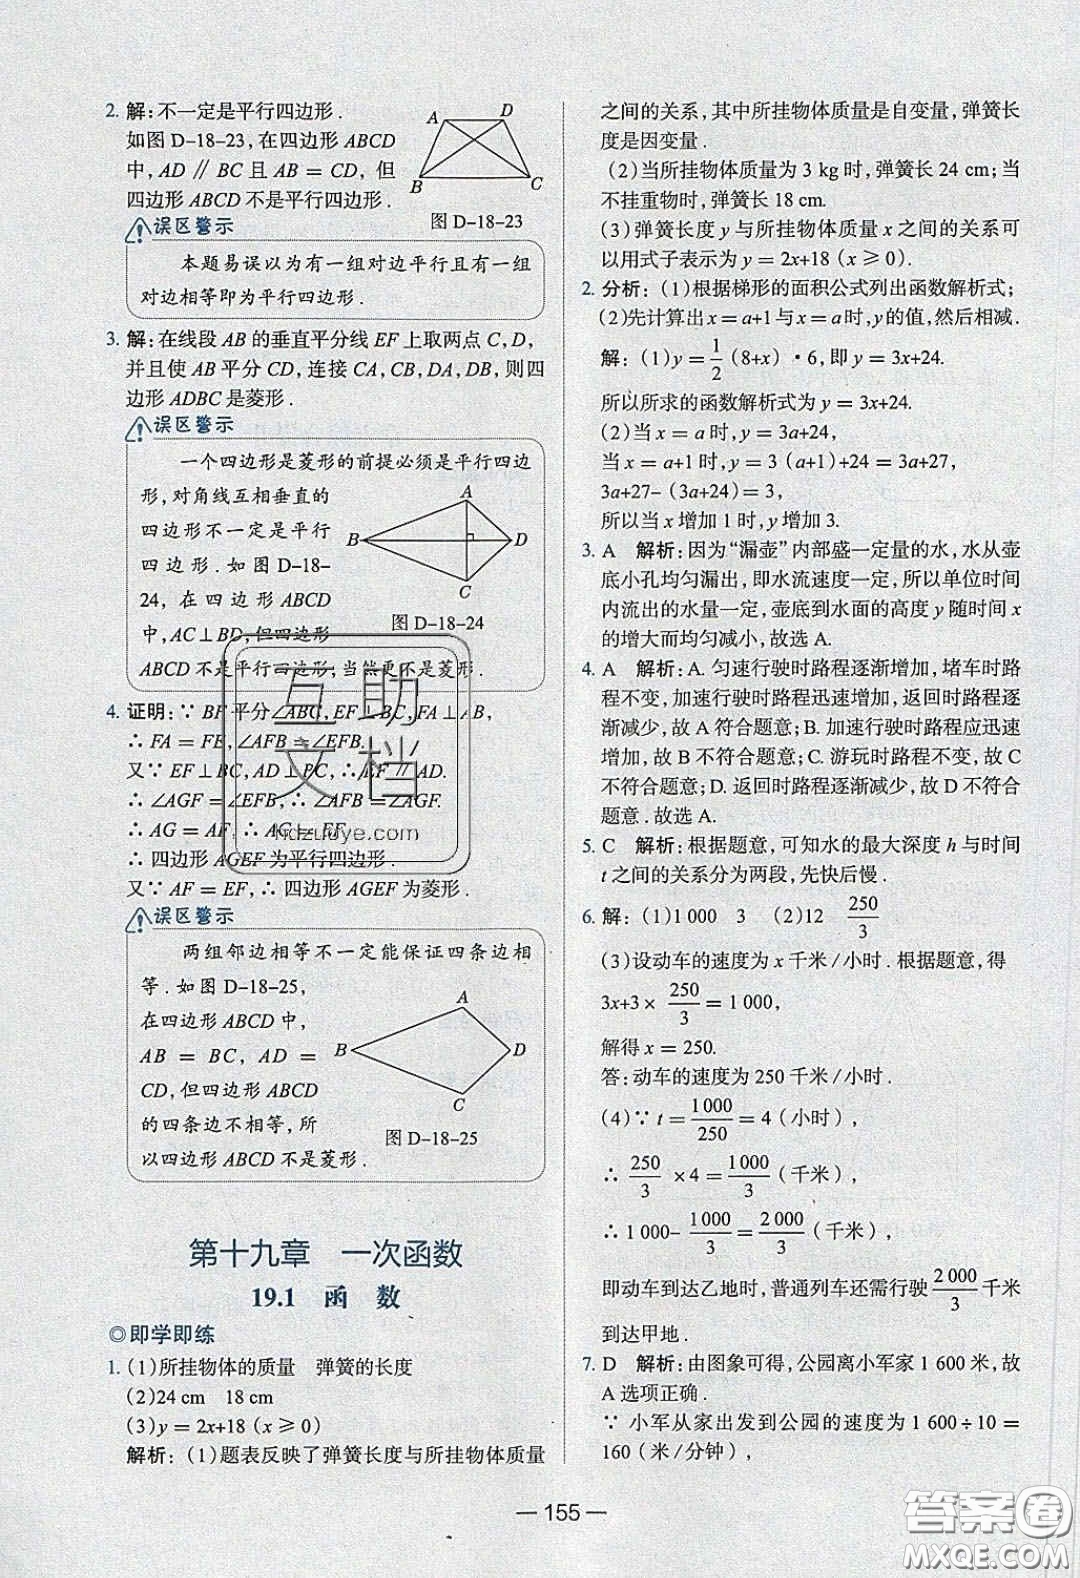 2. 解:不一定是平行四边形.
如图 D-18-23,在四边形 ABCD
中, AD ∥ BC 且 AB = CD, 但
四边形 ABCD 不是平行四边形.
A
D
B
C
图 D-18-23
误区警示
本题易误以为有一组对边平行且有一组
对边相等即为平行四边形.
3. 解:在线段 AB 的垂直平分线 EF 上取两点 C,D,
并且使 AB 平分 CD,连接 CA,CB,DA,DB,则四
边形 ADBC 是菱形.
误区警示
一个四边形是菱形的前提必须是平行四边
形,对角线互相垂直的
四边形不一定是平行
四边形.如图 D-18-
24, 在四边形 ABCD
中,AC⊥BD,但四边形
ABCD 不是平行四边形,当然更不是菱形.
A
B
D
C
图 D-18-24
4. 证明:∵ BF 平分∠ABC,EF⊥BC,FA⊥AB,
∴ FA = FE,∠AFB = ∠EFB.
又∵ EF⊥BC,AD⊥BC,∴ EF ∥ AD.
∴ ∠AGF = ∠EFB,∴ ∠AFB = ∠AGF.
∴ AG = AF,∴ AG = EF.
∴ 四边形 AGEF 为平行四边形.
又∵ AF = EF,∴ 四边形 AGEF 为菱形.
误区警示
两组邻边相等不一定能保证四条边相
等.如图 D-18-25,
在四边形 ABCD 中,
AB = BC, AD =
CD,但四边形 ABCD
的四条边不相等,所
以四边形 ABCD 不是菱形.
A
B
D
C
图 D-18-25
第十九章 一次函数
19.1 函 数
◎即学即练
1. (1)所挂物体的质量 弹簧的长度
(2)24 cm 18 cm
(3)y = 2x+18 (x ≥ 0)
解析:(1)题表反映了弹簧长度与所挂物体质量
之间的关系,其中所挂物体质量是自变量,弹簧长
度是因变量.
(2)当所挂物体质量为 3 kg 时,弹簧长 24 cm;当
不挂重物时,弹簧长 18 cm.
(3)弹簧长度 y 与所挂物体质量 x 之间的关系可
以用式子表示为 y = 2x+18 (x ≥ 0).
2. 分析:(1)根据梯形的面积公式列出函数解析式;
(2)先计算出 x = a+1 与 x = a 时,y 的值,然后相减.
解:(1)y = 1/2 (8+x)·6,即 y = 3x+24.
所以所求的函数解析式为 y = 3x+24.
(2)当 x = a 时,y = 3a+24,
当 x = a+1 时,y = 3 (a+1)+24 = 3a+27,
3a+27- (3a+24) = 3,
所以当 x 增加 1 时,y 增加 3.
3. A 解析:因为“漏壶”内部盛一定量的水,水从壶
底小孔均匀漏出,即水流速度一定,所以单位时间
内流出的水量一定,壶底到水面的高度 y 随时间 x
的增大而均匀减小,故选 A.
4. A 解析:A. 匀速行驶时路程逐渐增加,堵车时路
程不变,加速行驶时路程迅速增加,返回时路程逐
渐减少,故 A 符合题意;B. 加速行驶时路程应迅速
增加,故 B 不符合题意;C. 游玩时路程不变,故 C
不符合题意;D. 返回时路程逐渐减少,故 D 不符合
题意.故选 A.
5. C 解析:根据题意,可知水的最大深度 h 与时间
t 之间的关系分为两段,先快后慢.
6. 解:(1)1 000 3 (2)12 250/3
(3)设动车的速度为 x 千米/小时.根据题意,得
3x+3× 250/3 = 1 000,
解得 x = 250.
答:动车的速度为 250 千米/小时.
(4)∵ t = 1 000/250 = 4 (小时),
∴ 250/3 ×4 = 1 000/3 (千米),
∴ 1 000- 1 000/3 = 2 000/3 (千米),
即动车到达乙地时,普通列车还需行驶 2 000/3 千米
到达甲地.
7. D 解析:由图象可得,公园离小军家 1 600 米,故
A 选项正确.
∵ 小军从家出发到公园的速度为 1 600÷10 =
160(米/分钟),
— 155 —
互助
文档
hdzuoye.com
答案圈
MXQE.COM